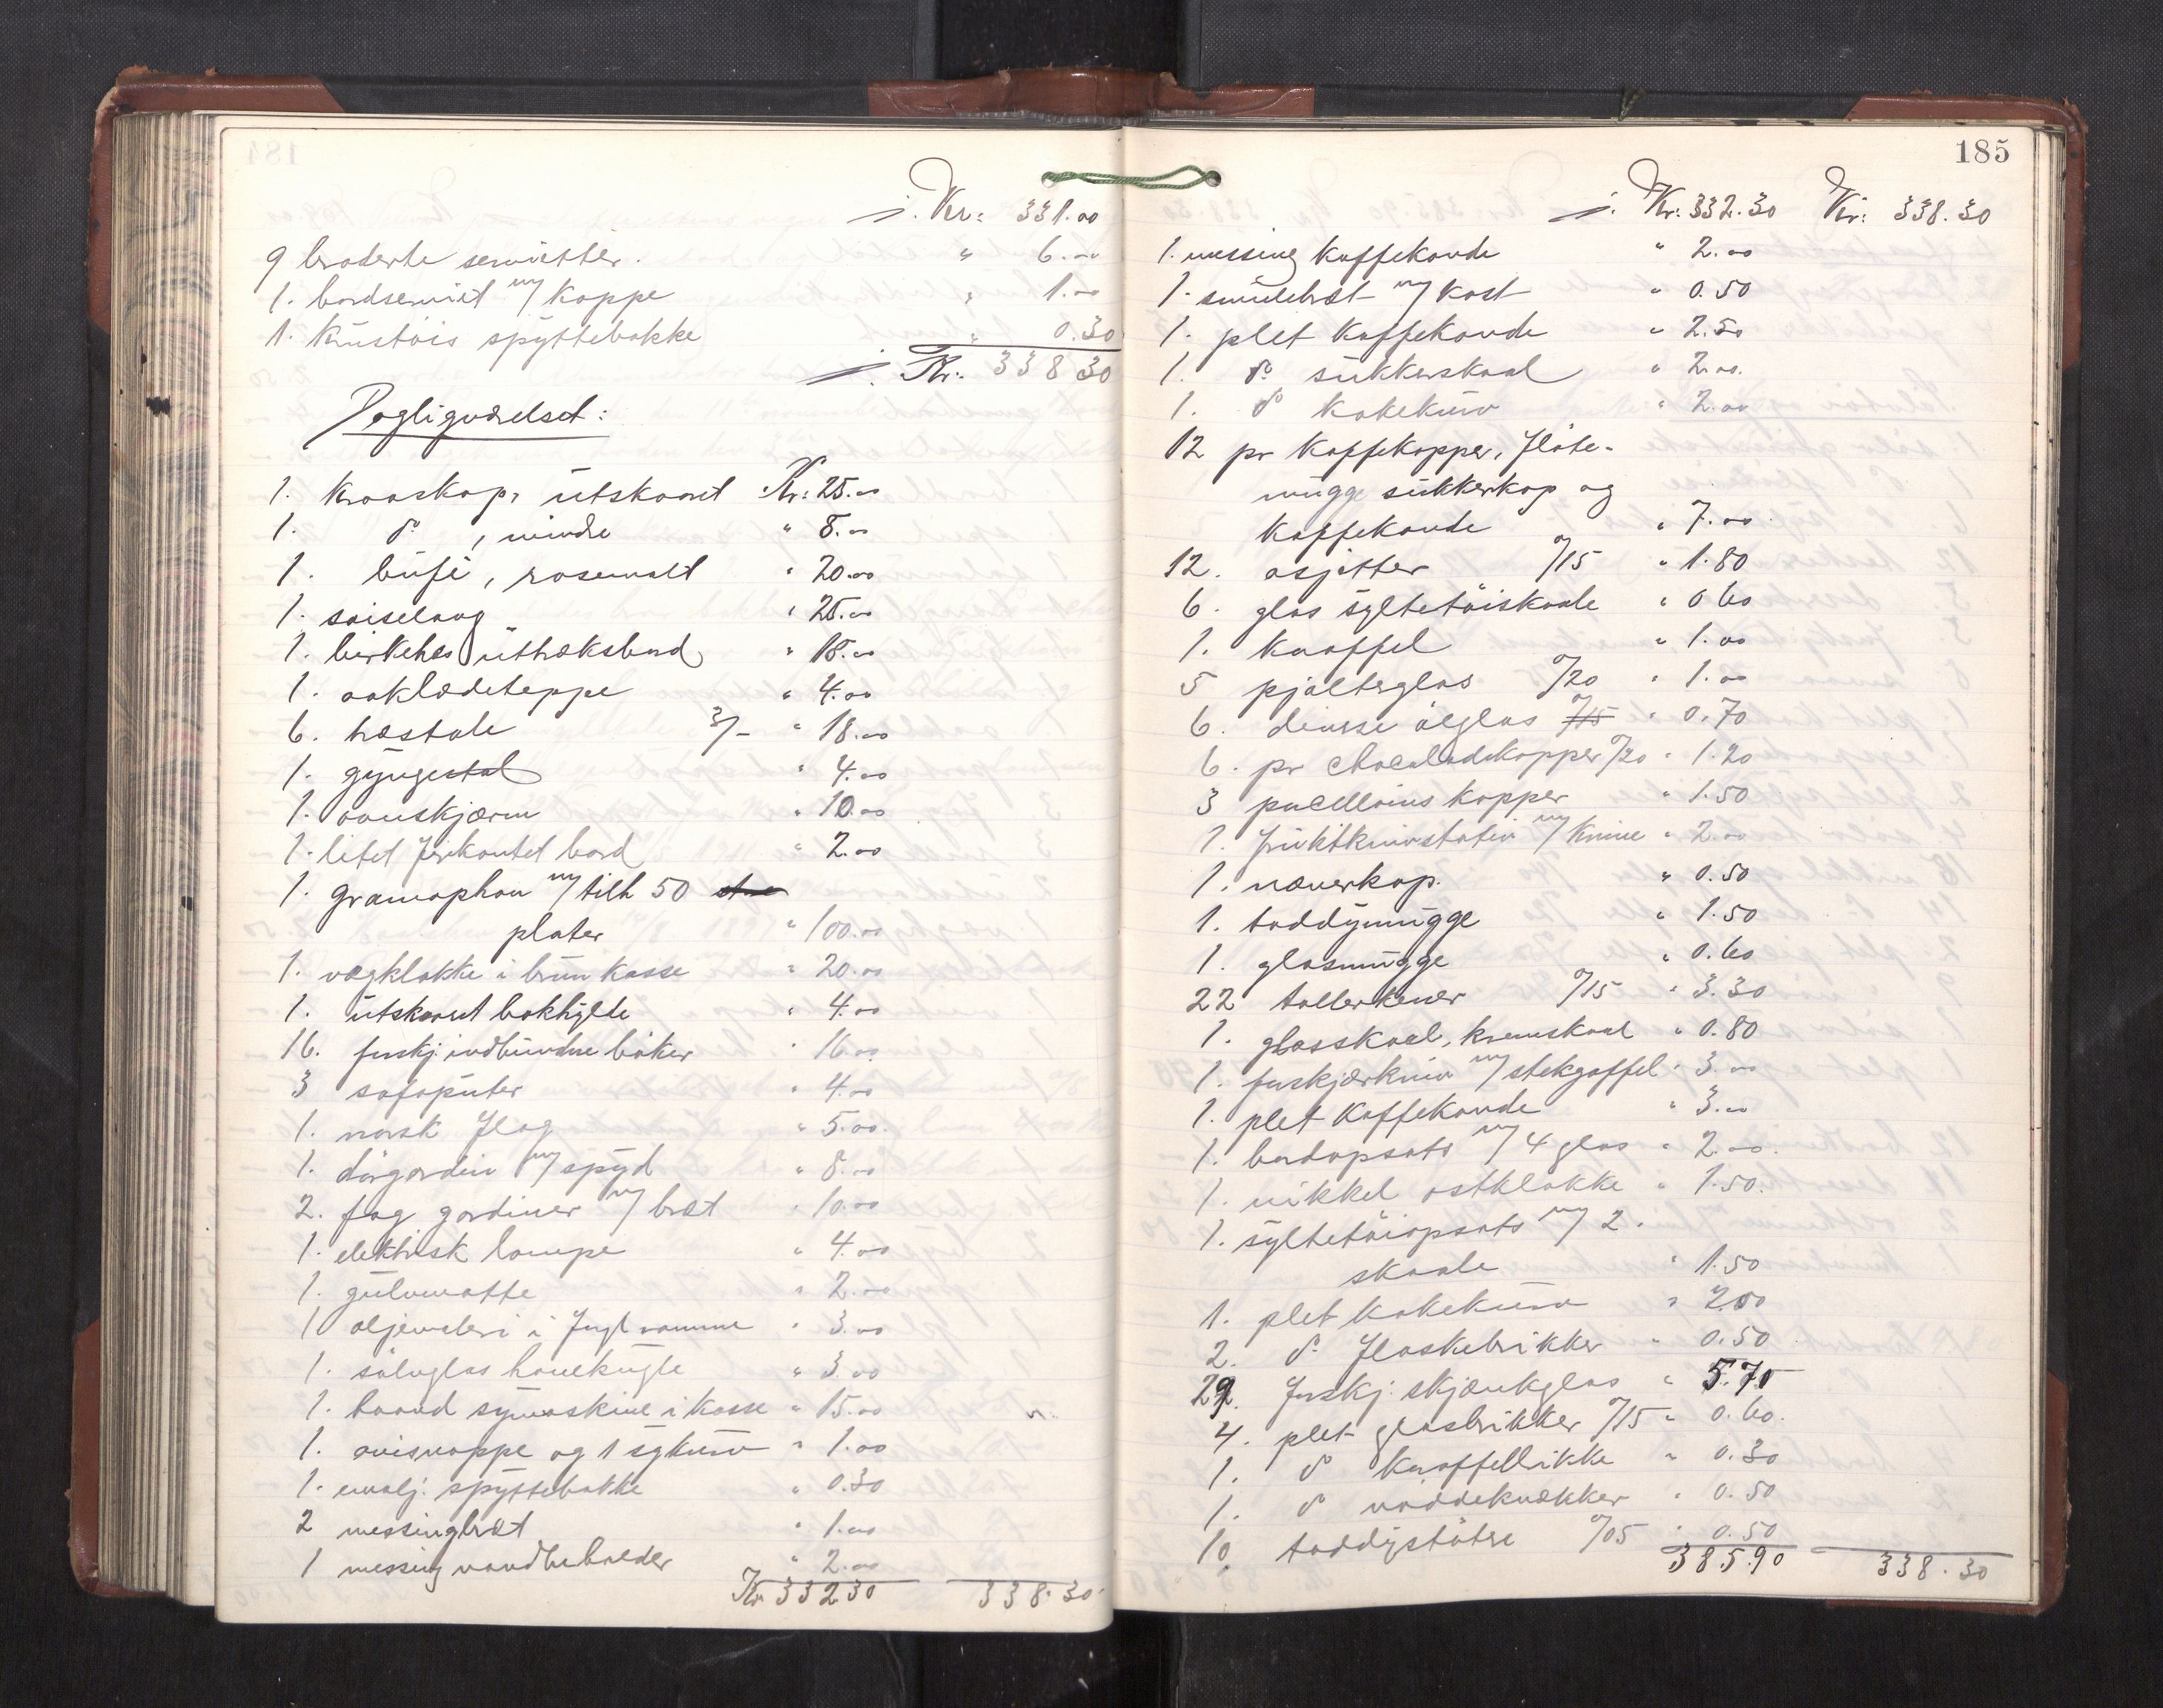 184
÷. Kr: 331.00
9 broderte servietter. " 6.00
1. bordserviet m/ kappe " 1.00
1. krustøis spyttebakke " 0.30
÷. Kr. 338 30
Dagligværelset:
1. krooskap, utskaaret Kr: 25.00
1. do, mindre " 8.00
1. bufe, rosemalt " 20.00
1. saiselong " 25.00
1. birkehes uttræksbord " 18.00
1. aaklædeteppe " 4.00
6. træstole 3/- " 18.00
1. gyngestol " 4.00
1. ovnskjærm " 10.00
1. litet firkantet bord " 2.00
1. gramophon m/ tilh 50
plater " 100.00
1. vægklokke i brun kasse " 20.00
1. utskaaret bokhylde " 4.00
16. forskj. indbundne bøker " 16.00
3 sofaputer " 4.00
1. norsk flag " 5.00
1. dørgardin m/ spyd " 8.00
2. fag gardiner m/ bræt " 10.00
1. elektrisk lampe " 4.00
1. gulvmatte " 2.00
1 oljemaleri i forgl ramme " 3.00
1. sølvglas havekugle " 3.00
1. haand symaskine i kasse " 15.00
1. avismappe og 1 sykurv " 1.00
1. emalj. spyttebakke " 0.30
2 messingbræt " 1.00
1 messing vandbeholder " 2.00
Kr 332 30 338.30
185
÷. Kr: 332.30 Kr: 338.30
1. messing kaffekande " 2.00
1. smulebræt m/ kost " 0.50
1. plet kaffekande " 2.50
1. do sukkerskaal " 2.00.
1. do kakekurv " 2.00
12 pr kaffekopper, fløte-
mugge sukkerkop og
kaffekande " 7.00
12. asjetter 0/15 " 1.80
6. glas syltetøiskaale " 0 60
1. karaffel " 1.00
5 pjolterglas 0/20 " 1.00
6. diverse ølglas 0/15 " 0.70
6. pr chocoladekopper 0/20 " 1.20
3 porcellains kopper " 1.50
1. fruktknivstativ m/ knive " 2.00
1. næverkop. " 0.50
1. toddymugge " 1.50
1. glasmugge " 0.60
22 tallerkener 0/15 " 3.30
1. glasskaal, kremskaal " 0.80
1. forskjærkniv m/ stekgaffel " 3.00
1. plet kaffekande " 3.00
1. bordopsats m/ 4 glas " 2.00.
1. nikkel ostklokke " 1.50.
1. syltetøiopsats m/ 2.
skaale " 1.50
1. plet kakekurv " 2.00
2. do flaskebrikker " 0.50
29. forskj. skjænkglas " 5.70
4. plet glasbrikker 0/15 " 0.60.
1. do karaffelbrikke " 0.30
1. do nøddeknækker " 0.50
10. toddystøtre 0/05 " 0.50
385.90 338.30